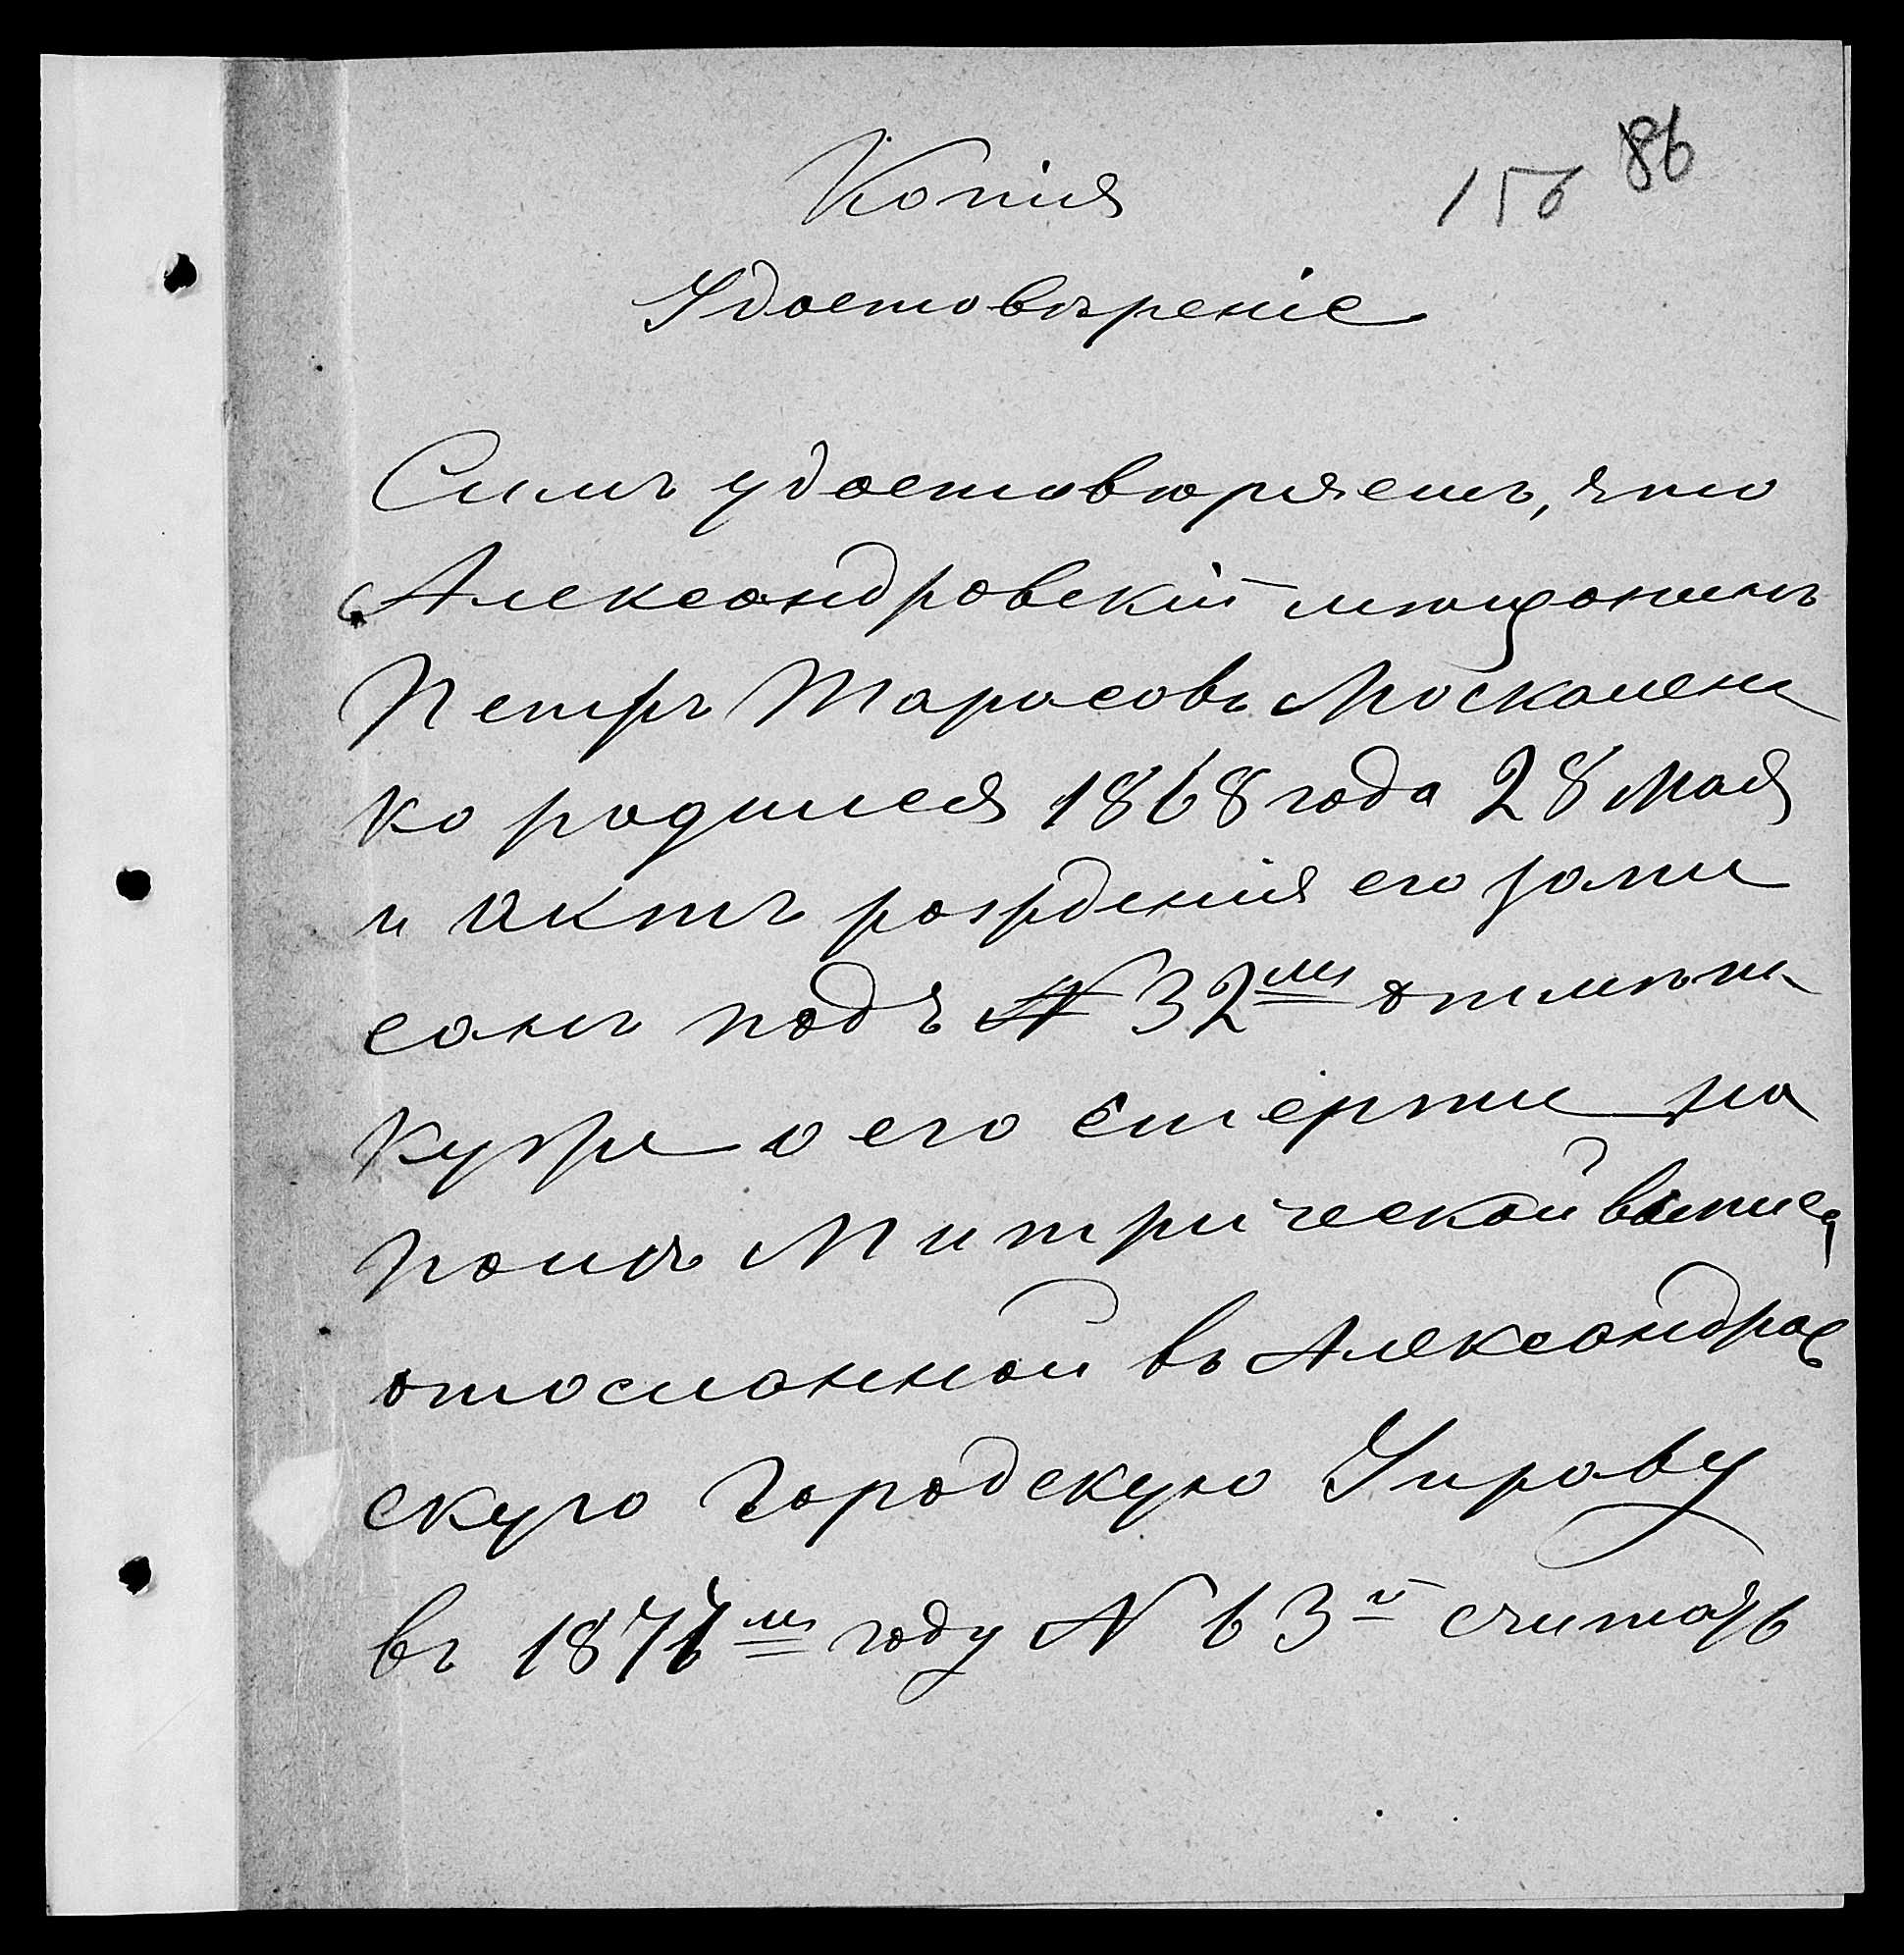 Копія
156 86
Удостовѣреніе
Симъ удостовѣряемъ, что
Александровскій мѣщанинъ
Петръ Тарасовъ Москален
ко родился 1868 года 28 Мая
и актъ рожденія его запи
санъ подъ № 32мъ отмѣт
ку же о его смерти на
нашей Митрической выписѣ
отосланной въ Александров
скую Городскую Управу
въ 187 мъ году № 63й считать